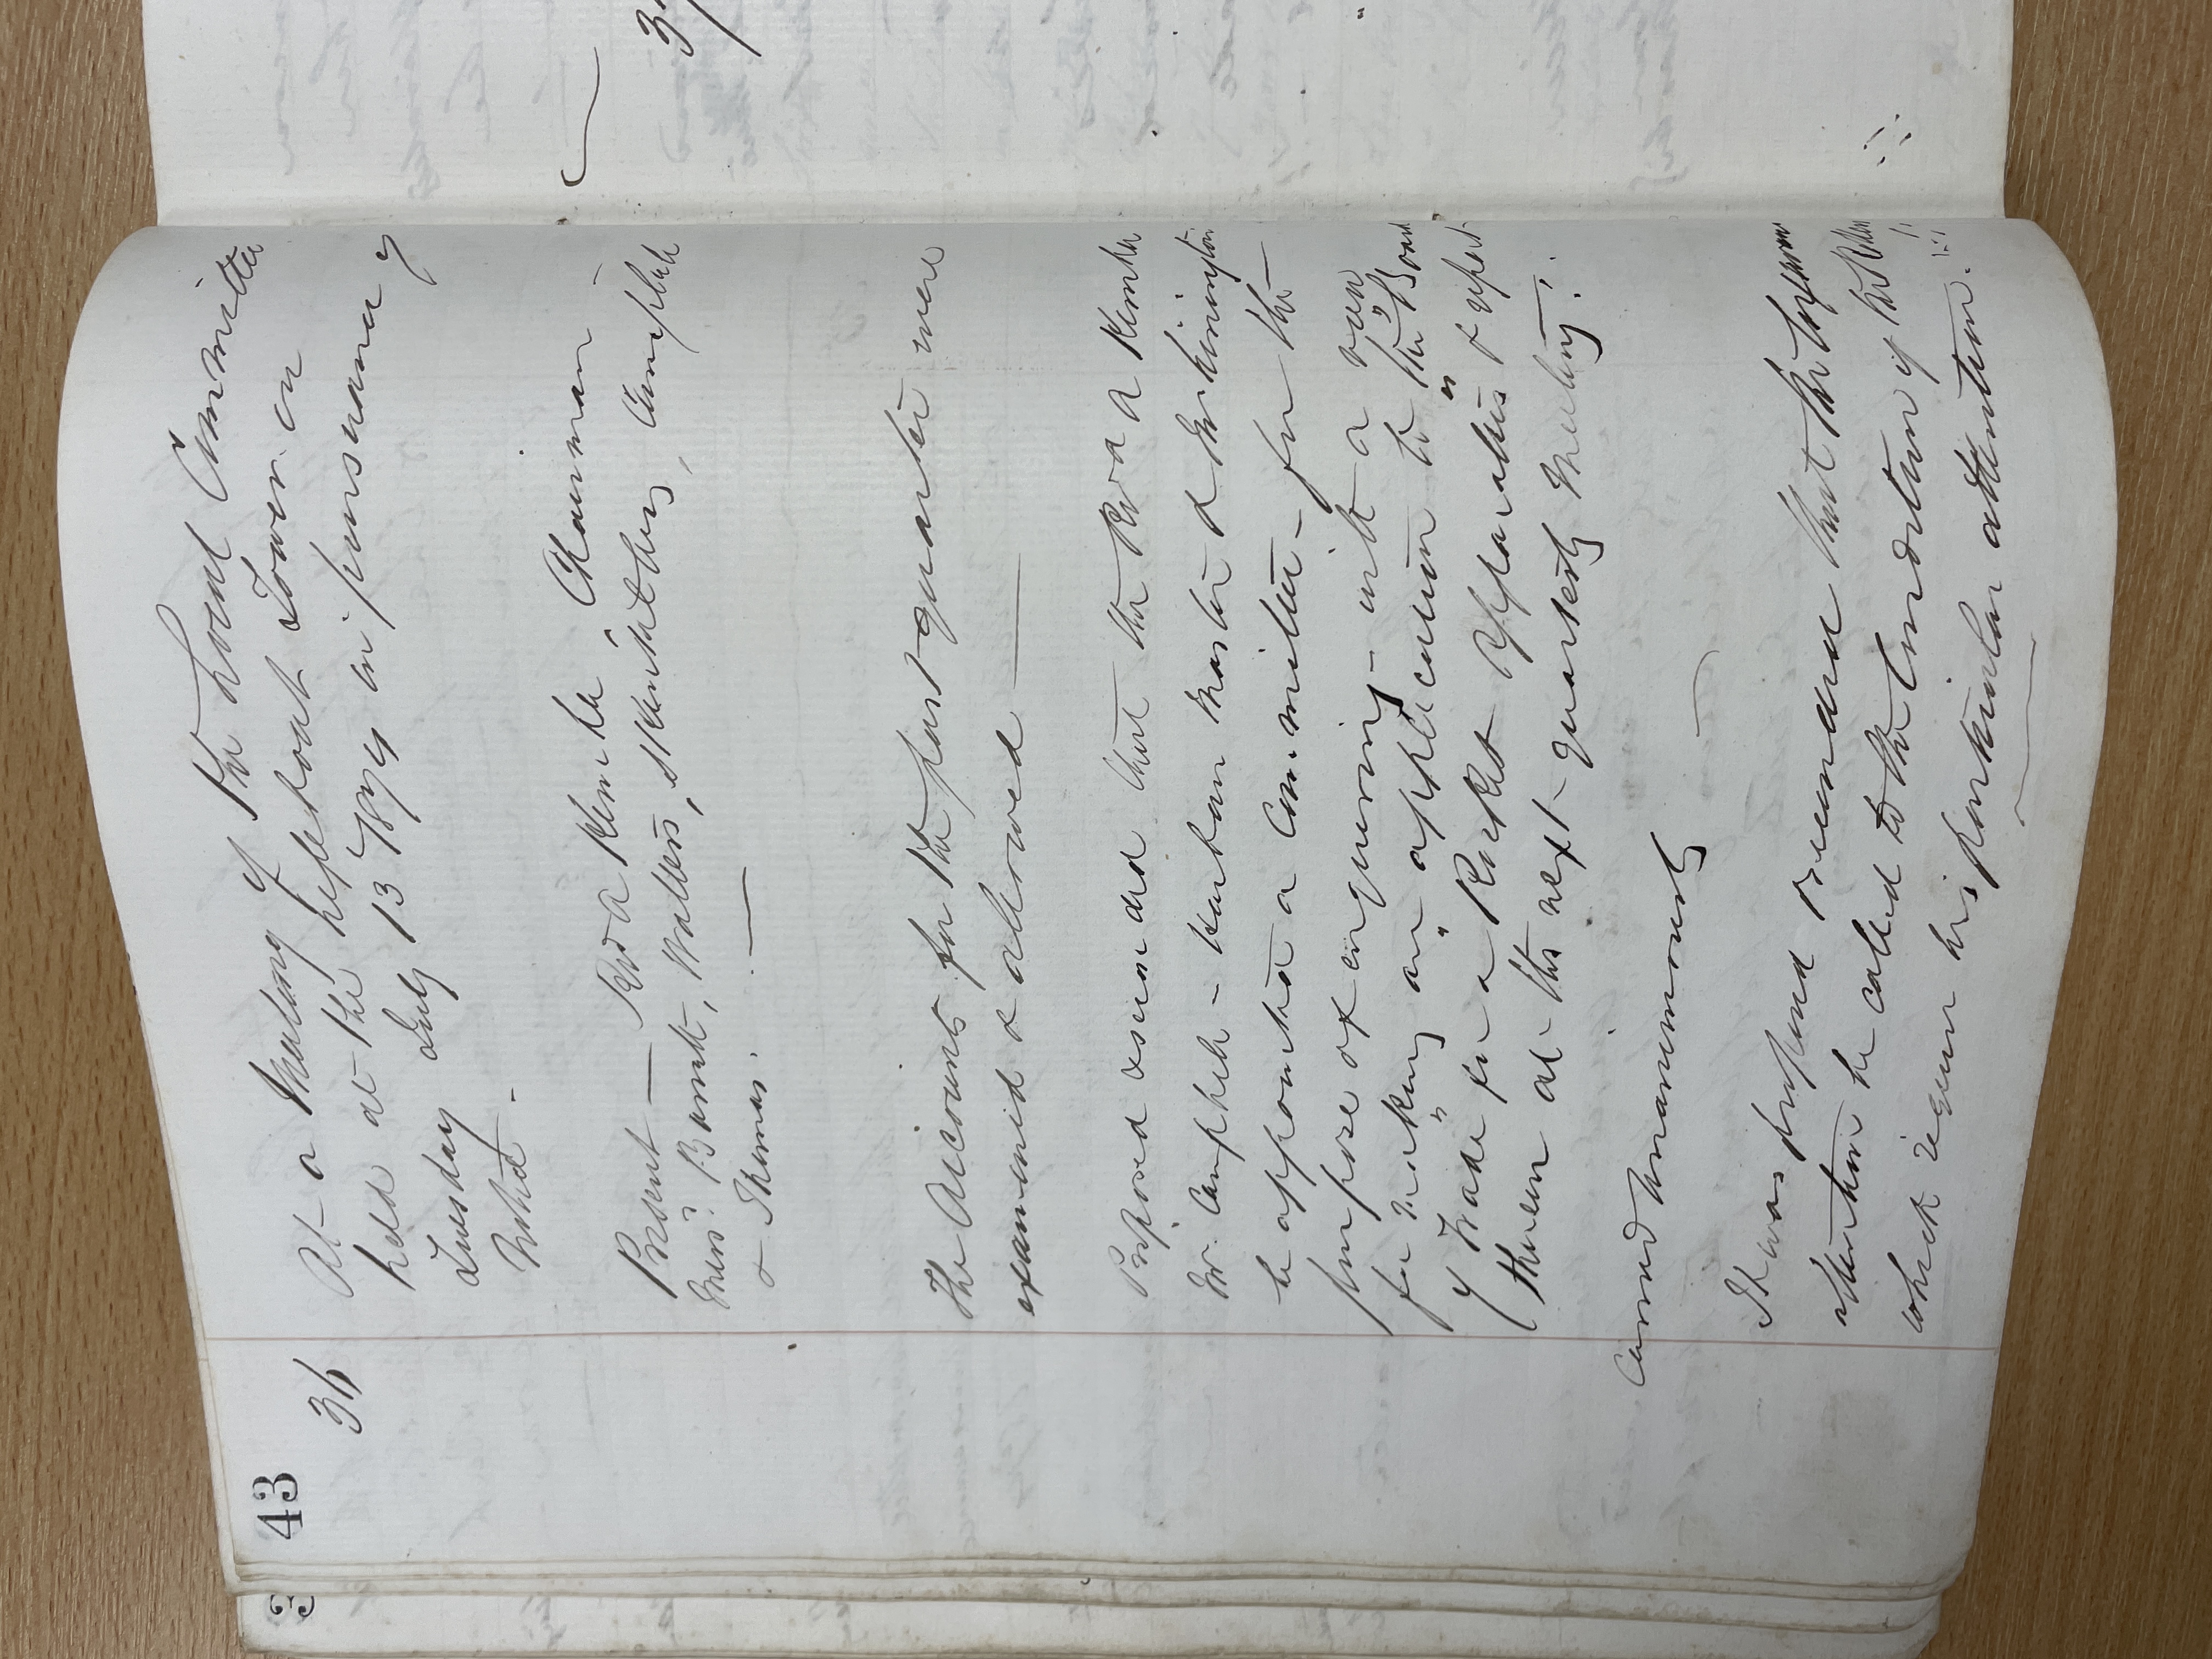 43
36
At a Meeting of the Local Committee
held at the Lifeboat Tower on
Tuesday July 13th 1874 in pursuance of
Notice -
Present — Revd A Kemble Chairman
Messrs Burnett, Walters, Skentelbery, Campbell
& Thomas. —
The Accounts for the past quarter were
examined & allowed —
Proposed & seconded that the Revd A Kemble
Mr Campbell - Harbour Master & Mr
be appointed a Committee - for the
purpose of enquiring - with a view
for making an application to "the Board
of Trade" for a "Rocket Apparatus" & report
thereon at the next quarterly Meeting.
Carried Unanimously
It was proposed & seconded that the
attention be called to the Condition of the
which require his particular attention.